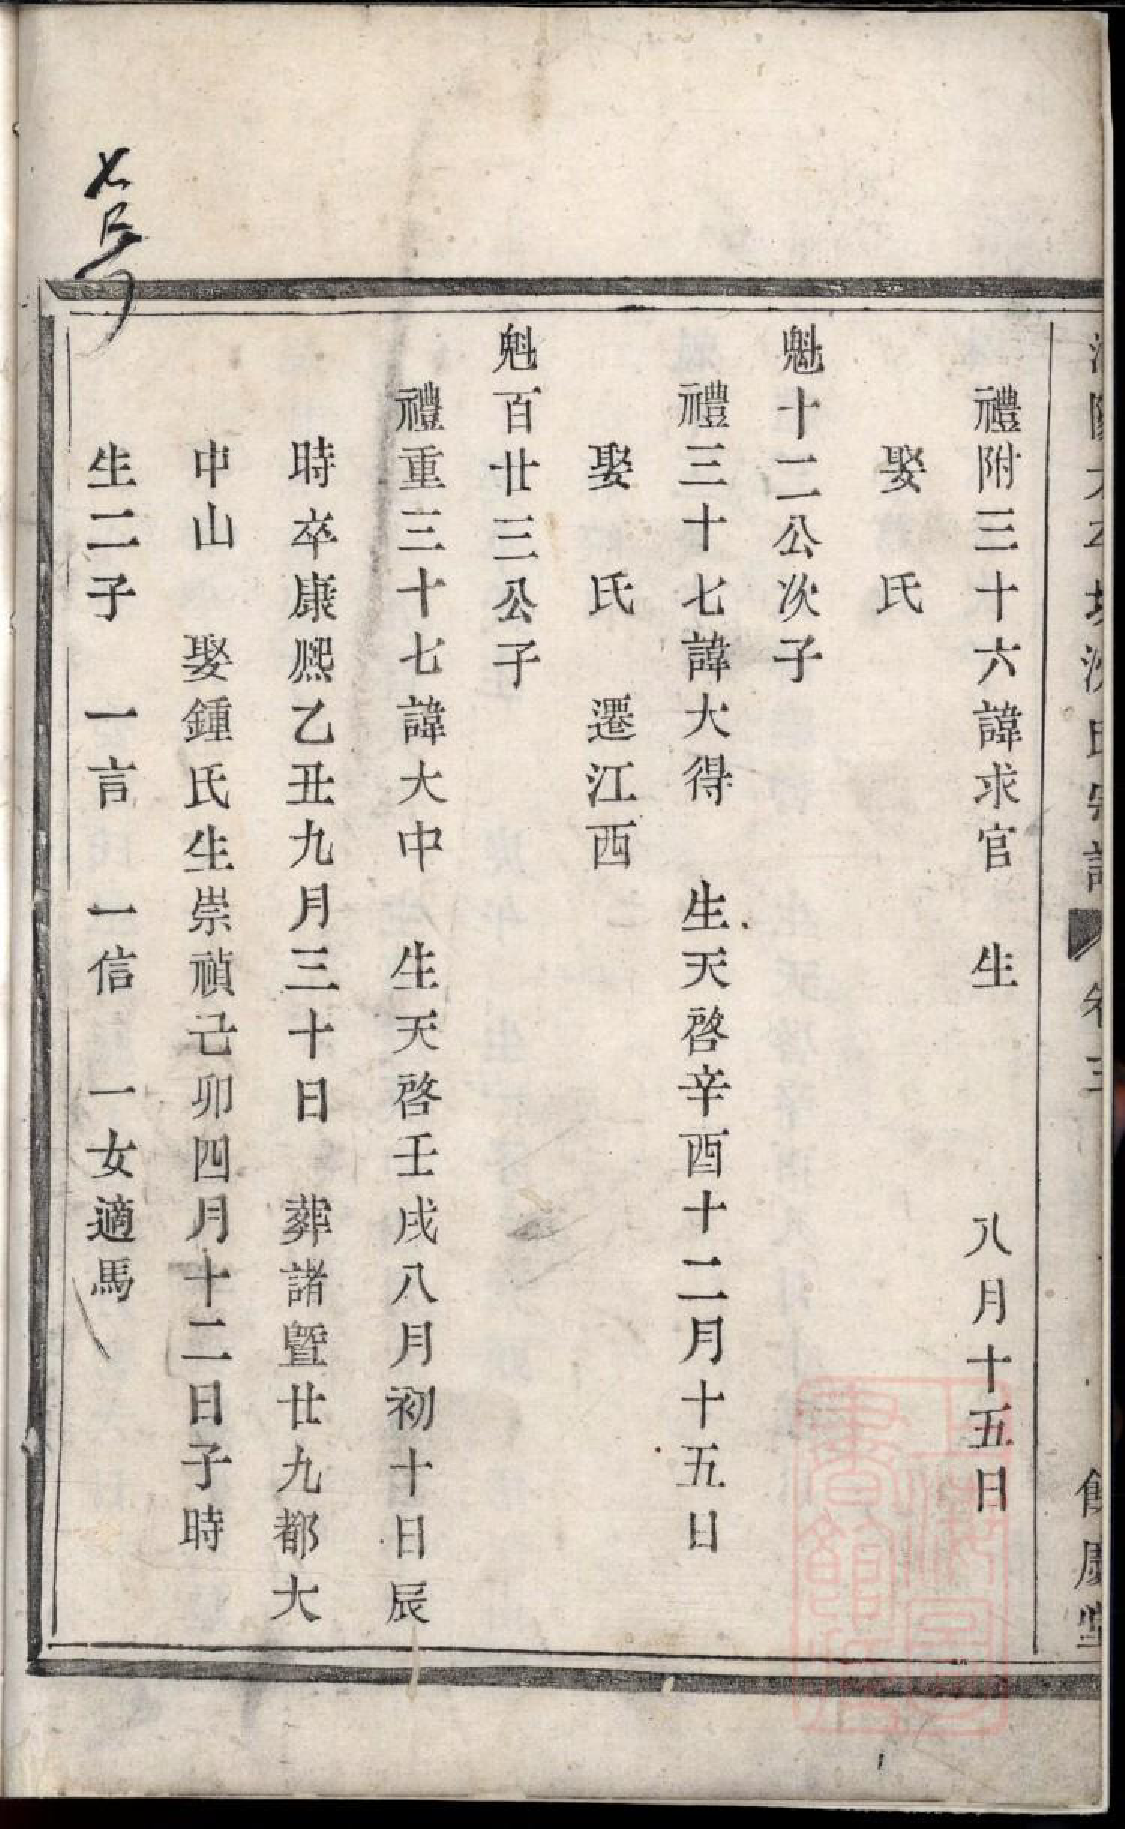 禮附三十六諱求官　生　八月十五日
娶　氏
魁十二公次子
禮三十七諱大得　生天啓辛酉十二月十五日
娶　氏　遷江西
魁百廿三公子
禮重三十七諱大中　生天啓壬戌八月初十日辰
時卒康熙乙丑九月三十日　葬諸暨廿九都大
中山　娶鍾氏生崇禎己卯四月十二日子時
生二子　一言　一信　一女適馬
卷三